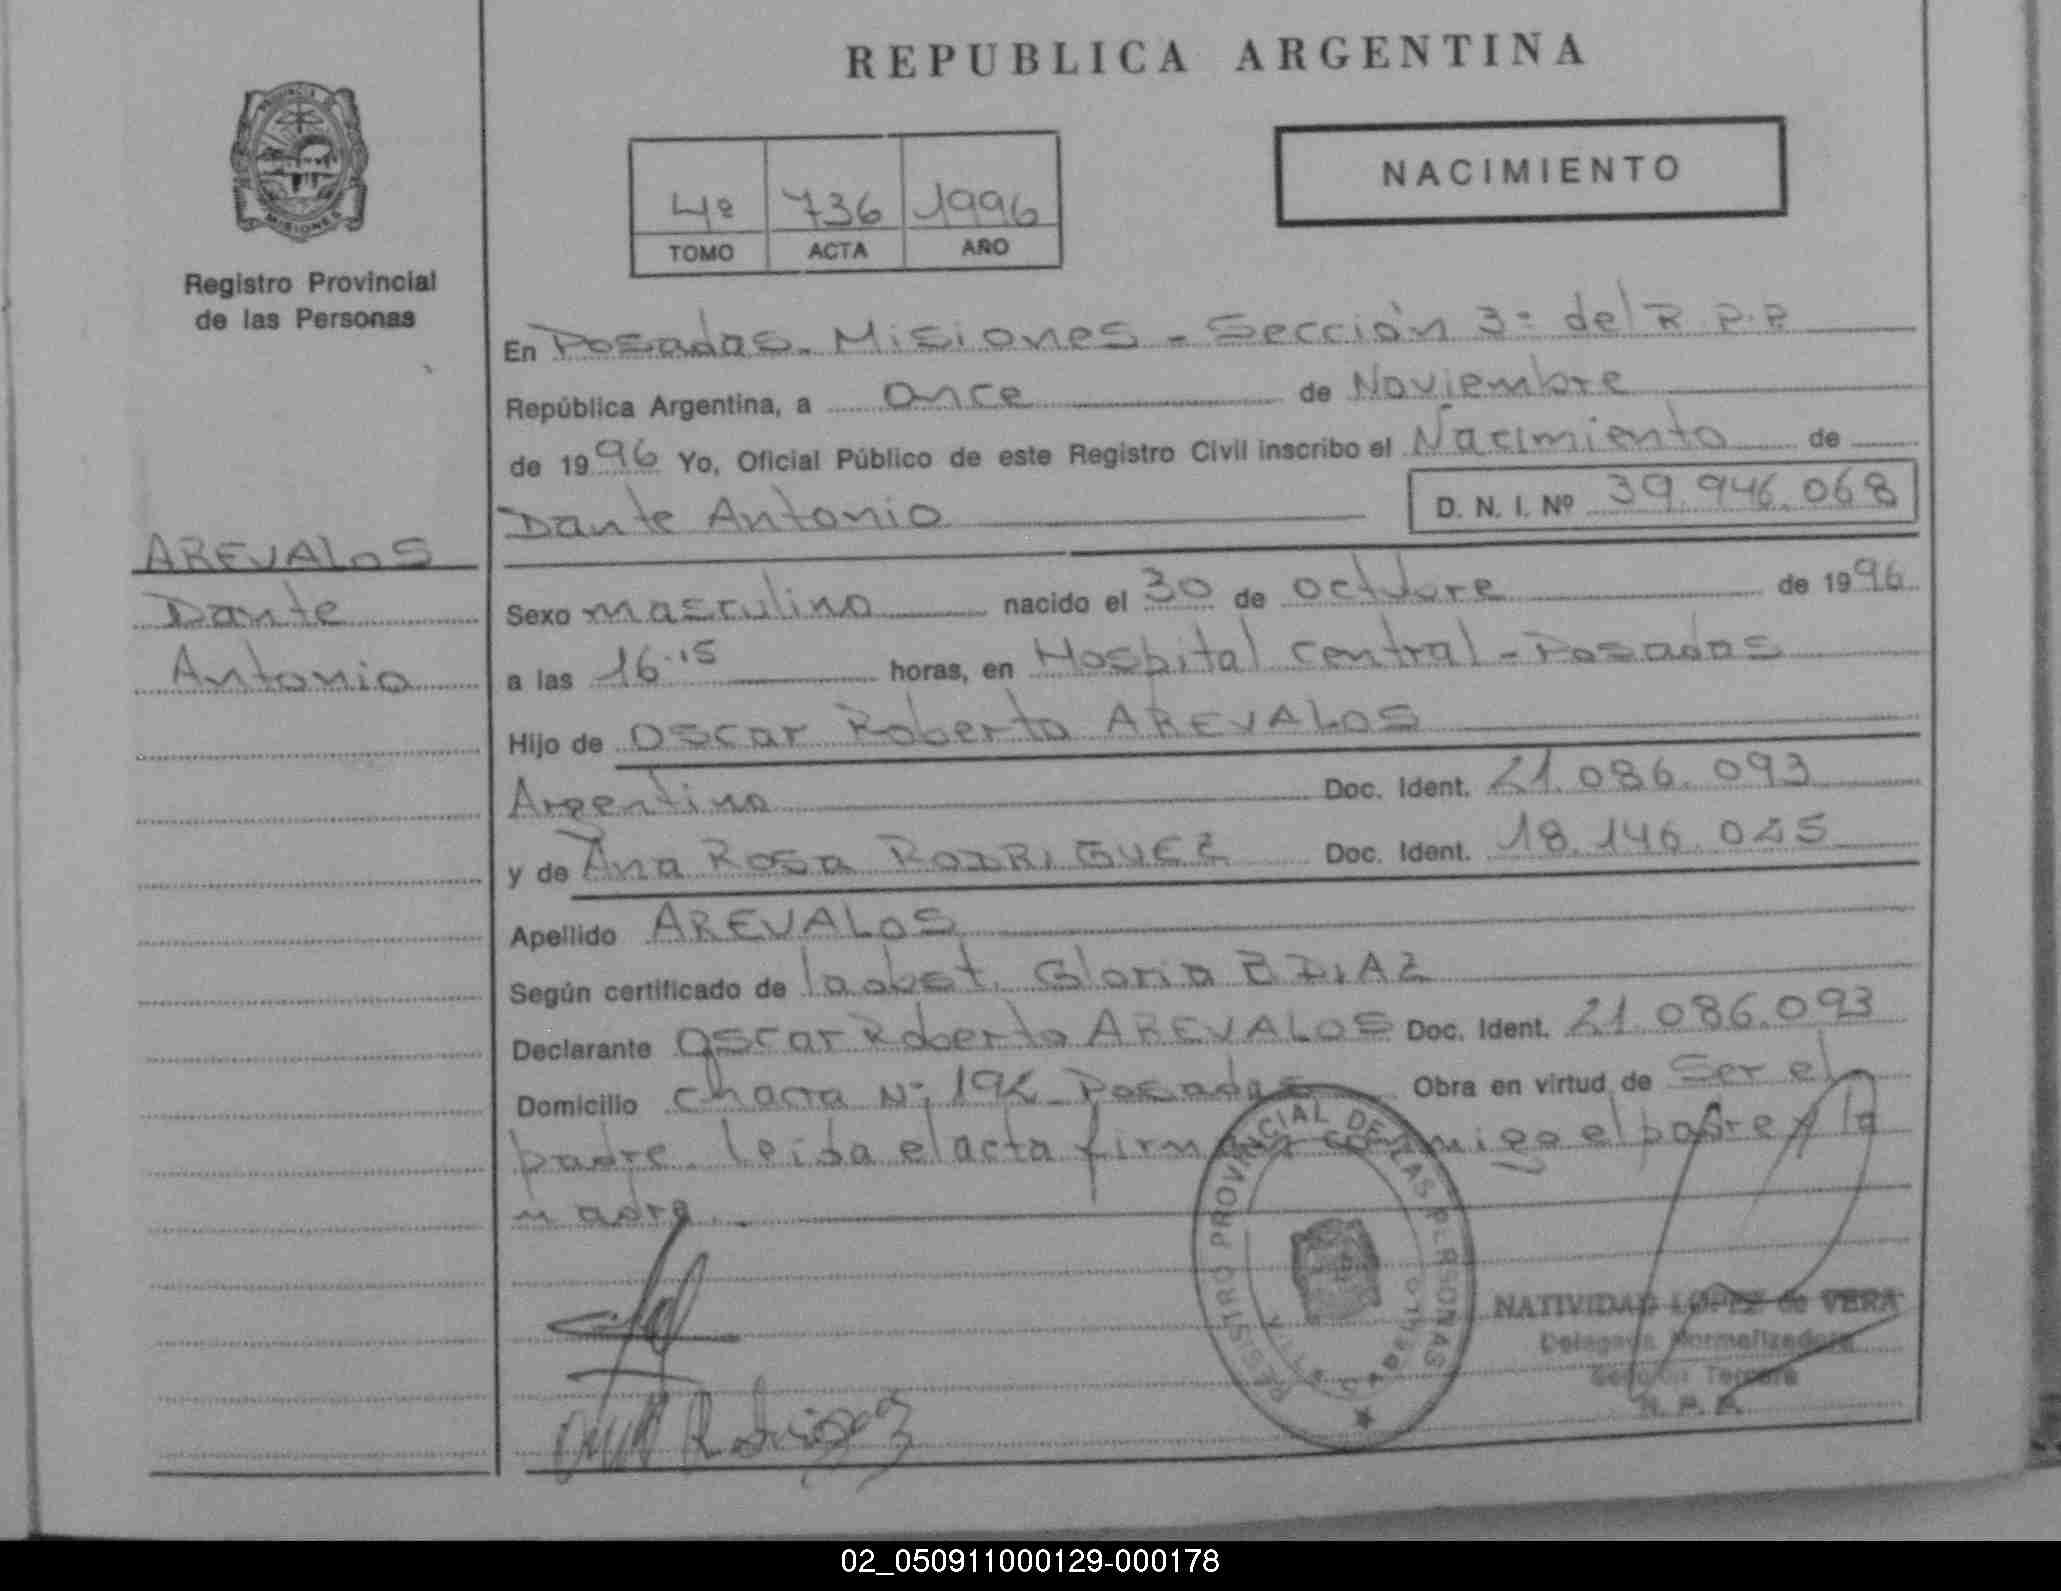 REPUBLICA ARGENTINA
NACIMIENTO
4º 736 1996
TOMO ACTA AÑO
Registro Provincial
de las Personas
En Posadas. Misiones - Sección 3º del R.P.P
República Argentina, a once de Noviembre
de 1996 Yo, Oficial Público de este Registro Civil inscribo el Nacimiento de
Dante Antonio D. N. I. Nº 39.946.068
AREVALOS
Dante
Antonio
Sexo masculino nacido el 30 de octubre de 1996
a las 16.15 horas, en Hospital central - Posadas
Hijo de Oscar Roberto AREVALOS
Argentino Doc. Ident. 21.086.093
y de Ana Rosa RODRIGUEZ Doc. Ident. 18.146.025
Apellido AREVALOS
Según certificado de la obst. Gloria B DIAZ
Declarante Oscar Roberto AREVALOS Doc. Ident. 21.086.093
Domicilio chacra Nº 192 Posadas Obra en virtud de Ser el
padre. leida el acta firman conmigo el padre y la
madre.
REGISTRO PROVINCIAL DE LAS PERSONAS
NATIVIDAD LOPEZ de VERA
Delegada Normalizadora
Sección Tercera
R. P. P.
Rodriguez
02_050911000129-000178